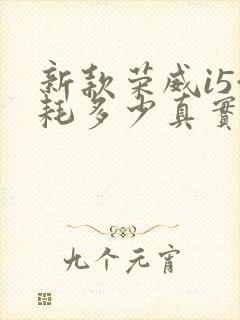 新款荣威i5
耗多少真實
九个元宵